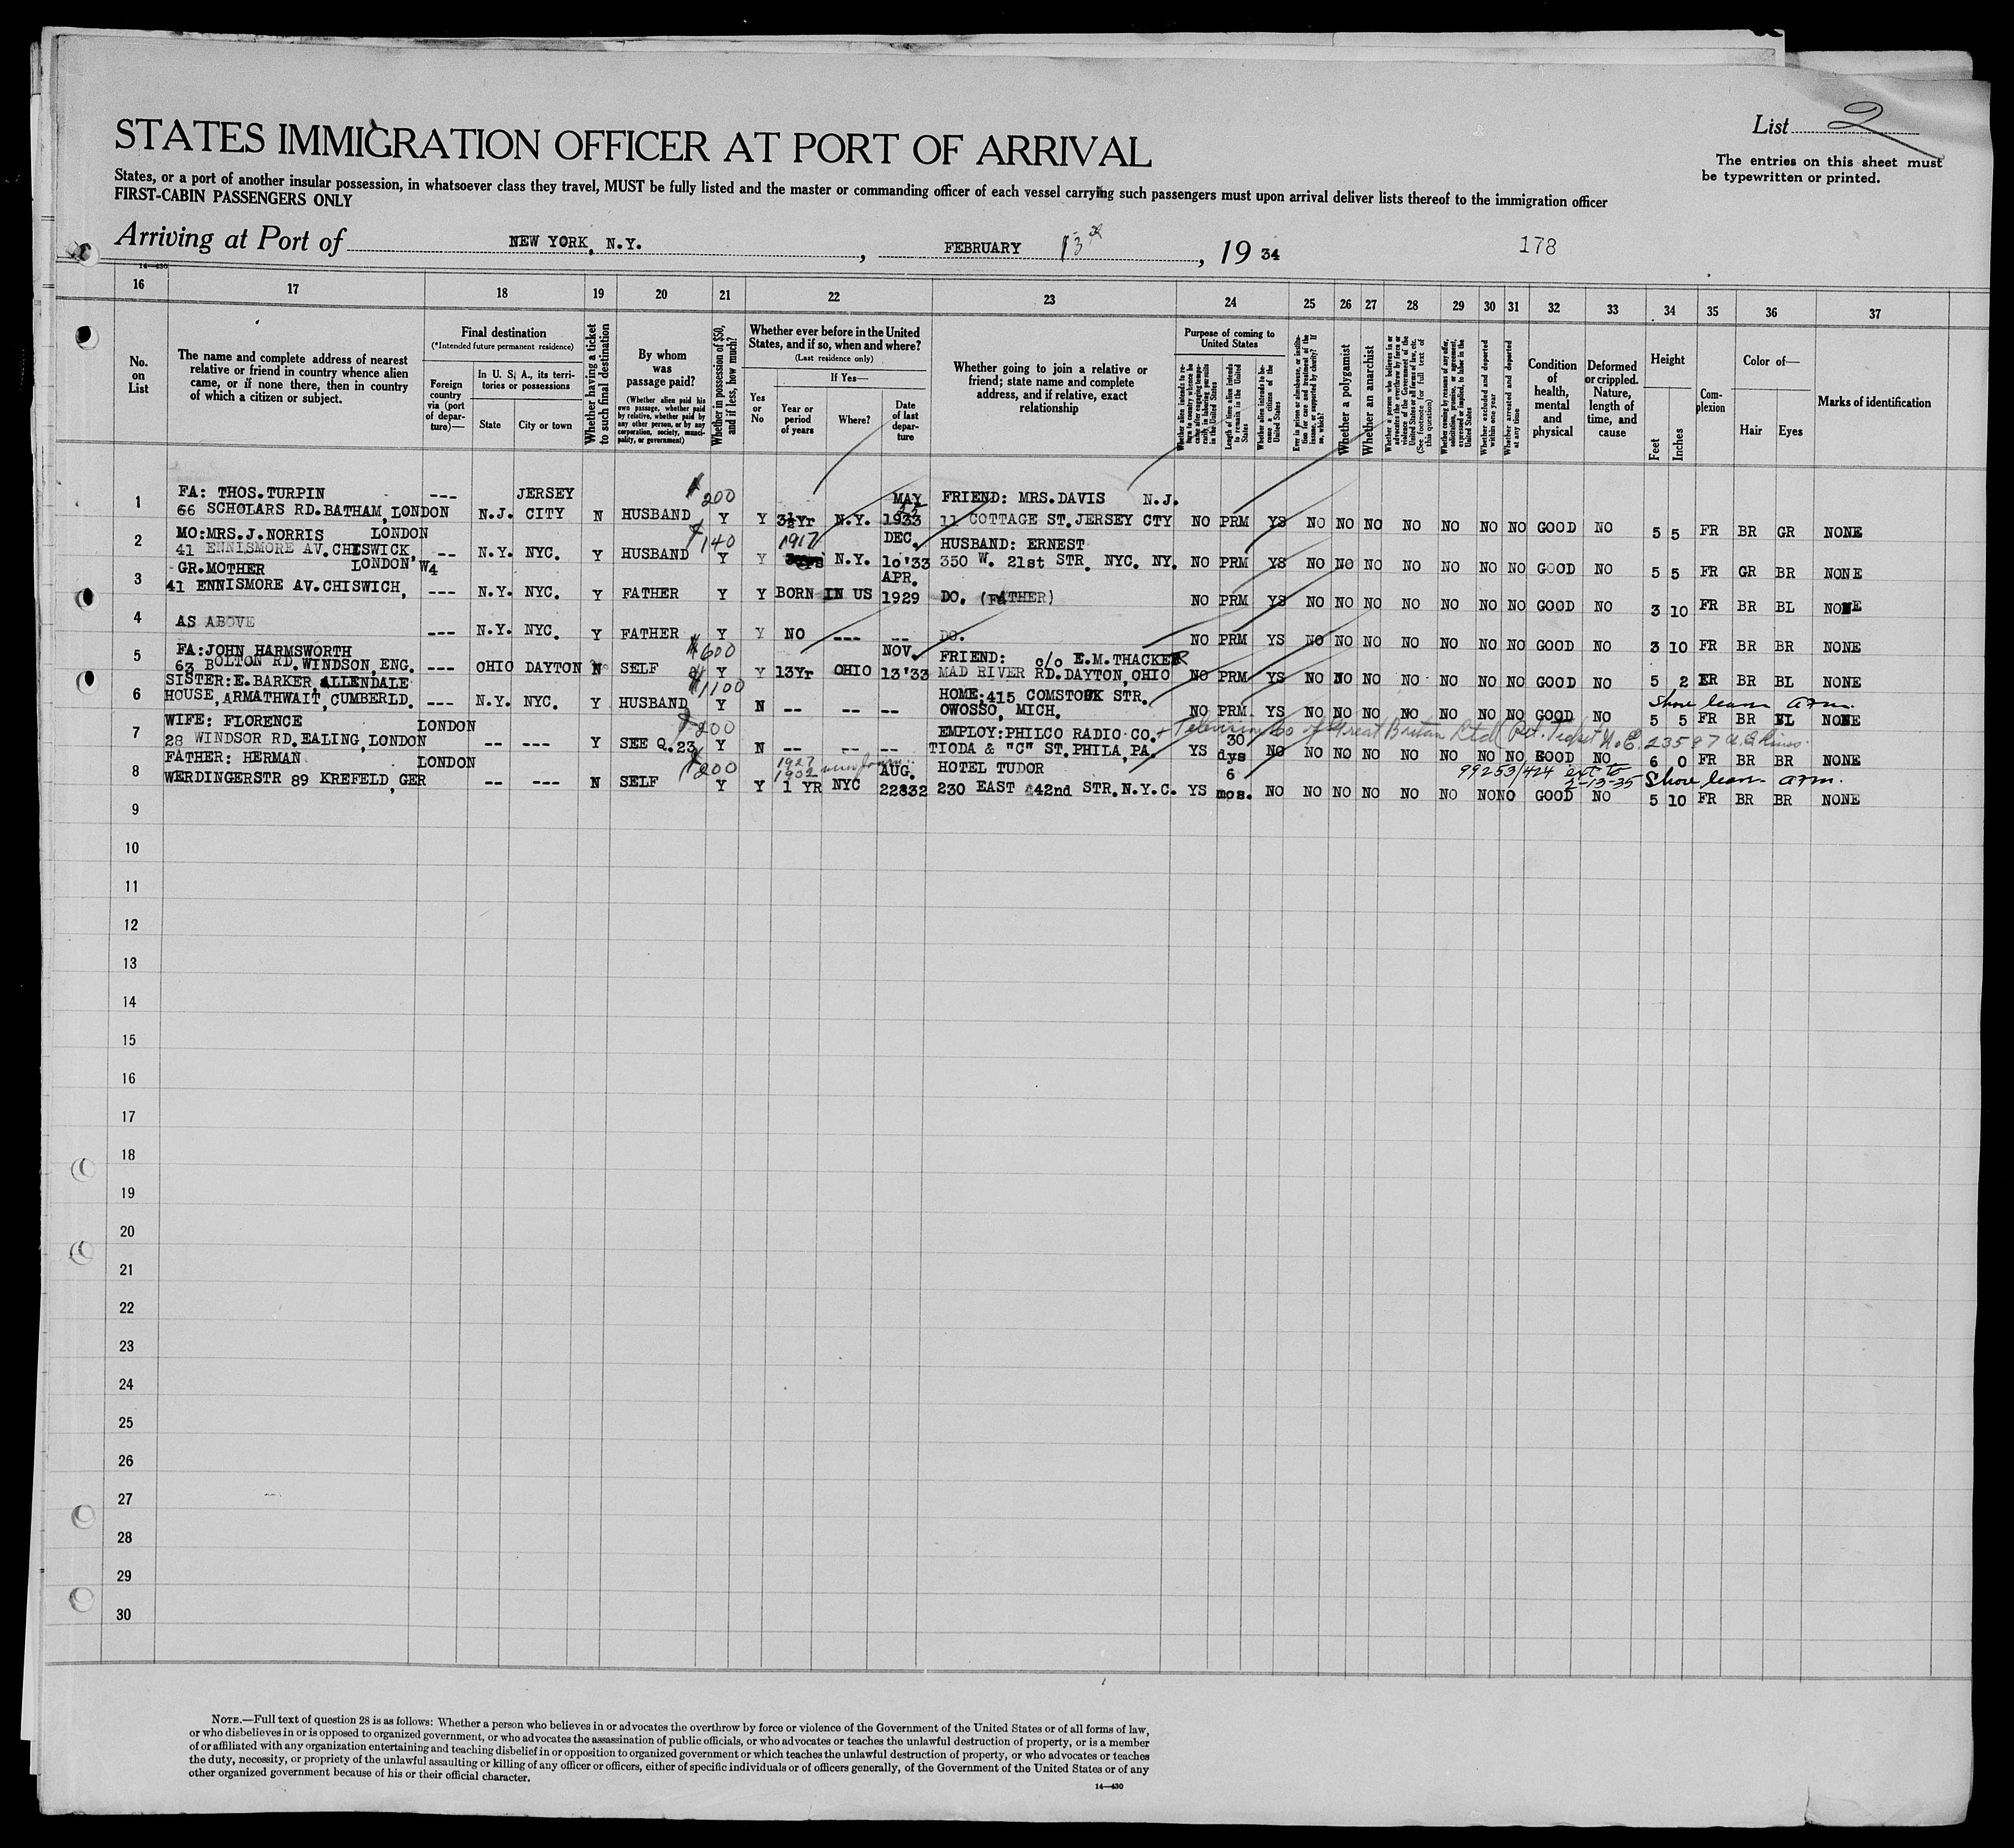 List 2
STATES IMMIGRATION OFFICER AT PORT OF ARRIVAL
The entries on this sheet must
be typewritten or printed.
States, or a port of another insular possession, in whatsoever class they travel, MUST be fully listed and the master or commanding officer of each vessel carrying such passengers must upon arrival deliver lists thereof to the immigration officer
FIRST-CABIN PASSENGERS ONLY
Arriving at Port of NEW YORK, N.Y., FEBRUARY 13th, 19 34 178
14—430
16 17 18 19 20 21 22 23 24 25 26 27 28 29 30 31 32 33 34 35 36 37
No. on List
The name and complete address of nearest relative or friend in country whence alien came, or if none there, then in country of which a citizen or subject.
Final destination
(*Intended future permanent residence)
Foreign country via (port of departure)—
In U. S. A., its territories or possessions
State
City or town
Whether having a ticket to such final destination
By whom was passage paid?
(Whether alien paid his own passage, whether paid by relative, whether paid by any other person, or by any corporation, society, municipality, or government)
Whether in possession of $50, and if less, how much?
Whether ever before in the United States, and if so, when and where?
(Last residence only)
Yes or No
If Yes—
Year or period of years
Where?
Date of last departure
Whether going to join a relative or friend; state name and complete address, and if relative, exact relationship
Purpose of coming to United States
Length of time alien intends to remain in the United States
Whether alien intends to become a citizen of the United States
Whether a polygamist
Whether an anarchist
Whether arrested and deported at any time
Condition of health, mental and physical
Deformed or crippled. Nature, length of time, and cause
Height
Feet
Inches
Complexion
Color of—
Hair
Eyes
Marks of identification
1 FA: THOS.TURPIN --- JERSEY $200 MAY FRIEND: MRS.DAVIS N.J.
66 SCHOLARS RD.BATHAM,LONDON N.J. CITY N HUSBAND Y Y 3½Yr N.Y. 1933 11 COTTAGE ST.JERSEY CTY NO PRM YS NO NO NO NO NO NO NO GOOD NO 5 5 FR BR GR NONE
2 MO:MRS.J.NORRIS LONDON $140 1917 DEC. HUSBAND: ERNEST
41 ENNISMORE AV.CHISWICK, -- N.Y. NYC. Y HUSBAND Y Y N.Y. 10'33 350 W. 21st STR. NYC. NY. NO PRM YS NO NO NO NO NO NO NO GOOD NO 5 5 FR GR BR NONE
3 GR.MOTHER LONDON W4 APR.
41 ENNISMORE AV.CHISWICH, --- N.Y. NYC. Y FATHER Y Y BORN IN US 1929 DO. (FATHER) NO PRM YS NO NO NO NO NO NO NO GOOD NO 3 10 FR BR BL NONE
4 AS ABOVE --- N.Y. NYC. Y FATHER Y Y NO --- -- DO. NO PRM YS NO NO NO NO NO NO NO GOOD NO 3 10 FR BR BR NONE
5 FA:JOHN HARMSWORTH $600 NOV. FRIEND: c/o E.M.THACKER
63 BOLTON RD.WINDSON,ENG. --- OHIO DAYTON N SELF Y Y 13Yr OHIO 13'33 MAD RIVER RD.DAYTON,OHIO NO PRM YS NO NO NO NO NO NO NO GOOD NO 5 2 ER BR BL NONE
6 SISTER:E.BARKER ALLENDALE $1100 HOME;415 COMSTOCK STR.
HOUSE,ARMATHWAIT,CUMBERLD. --- N.Y. NYC. Y HUSBAND Y N -- -- -- OWOSSO, MICH. NO PRM YS NO NO NO NO NO NO NO GOOD NO 5 5 FR BR BL NONE
7 WIFE: FLORENCE LONDON $200 EMPLOY:PHILCO RADIO CO. + Television Co of Great Britain Ltd
28 WINDSOR RD.EALING,LONDON -- --- Y SEE Q.23 Y N -- -- -- TIODA & "C" ST.PHILA,PA. YS 30 dys NO NO NO NO NO NO NO NO GOOD NO 6 0 FR BR BR NONE
8 FATHER: HERMAN LONDON $200 1927 1902 AUG. HOTEL TUDOR 99253/424 ext to 2-13-35
WERDINGERSTR 89 KREFELD,GER -- --- N SELF Y Y 1 YR NYC 22832 230 EAST 42nd STR.N.Y.C. YS 6 mos. NO NO NO NO NO NO NONO GOOD NO 5 10 FR BR BR NONE
9
10
11
12
13
14
15
16
17
18
19
20
21
22
23
24
25
26
27
28
29
30
NOTE.—Full text of question 28 is as follows: Whether a person who believes in or advocates the overthrow by force or violence of the Government of the United States or of all forms of law,
or who disbelieves in or is opposed to organized government, or who advocates the assassination of public officials, or who advocates or teaches the unlawful destruction of property, or is a member
of or affiliated with any organization entertaining and teaching disbelief in or opposition to organized government or which teaches the unlawful destruction of property, or who advocates or teaches
the duty, necessity, or propriety of the unlawful assaulting or killing of any officer or officers, either of specific individuals or of officers generally, of the Government of the United States or of any
other organized government because of his or their official character.
14—430